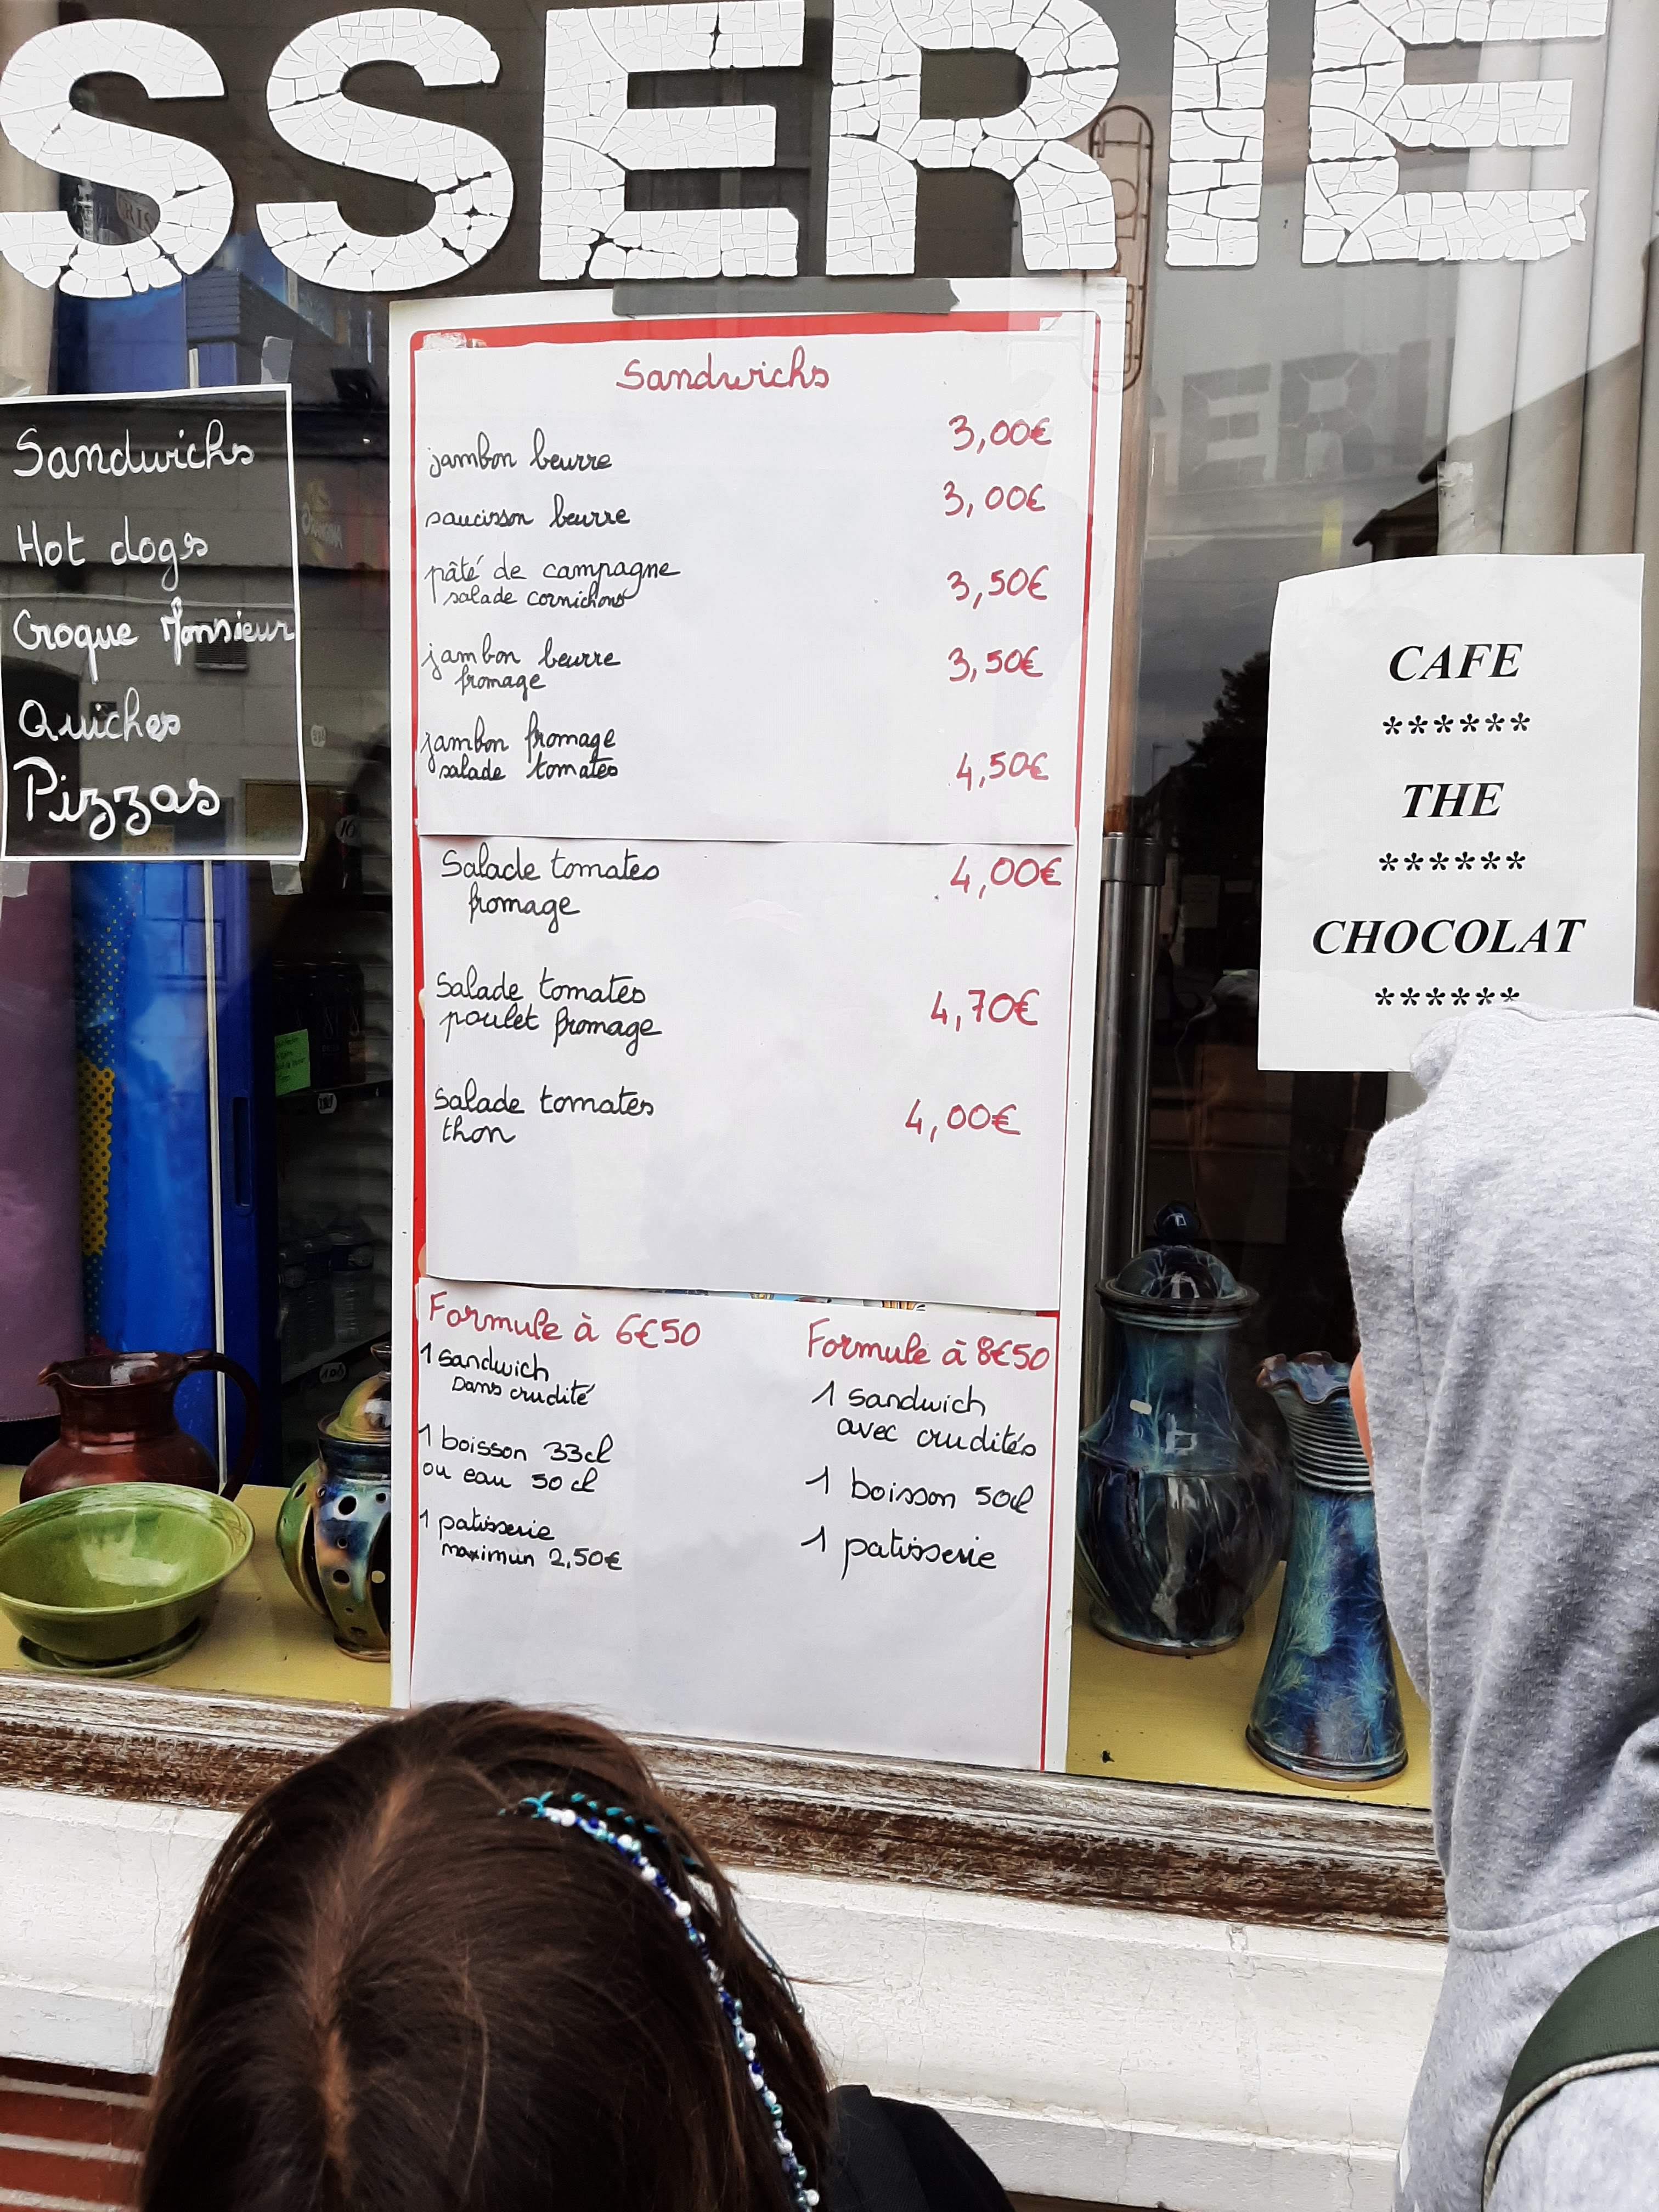 SSERIE
Sandwichs
Hot dogs
Croque Monsieur
Quiches
Pizzas
Sandwichs
jambon beurre 3,00€
saucisson beurre 3,00€
pâté de campagne
salade cornichons 3,50€
jambon beurre
fromage 3,50€
jambon fromage
salade tomates 4,50€
Salade tomates
fromage 4,00€
Salade tomates
poulet fromage 4,70€
Salade tomates
thon 4,00€
Formule à 6€50
1 sandwich
sans crudité
1 boisson 33cl
ou eau 50 cl
1 patisserie
maximun 2,50€
Formule à 8€50
1 sandwich
avec crudités
1 boisson 50cl
1 patisserie
CAFE
******
THE
******
CHOCOLAT
******